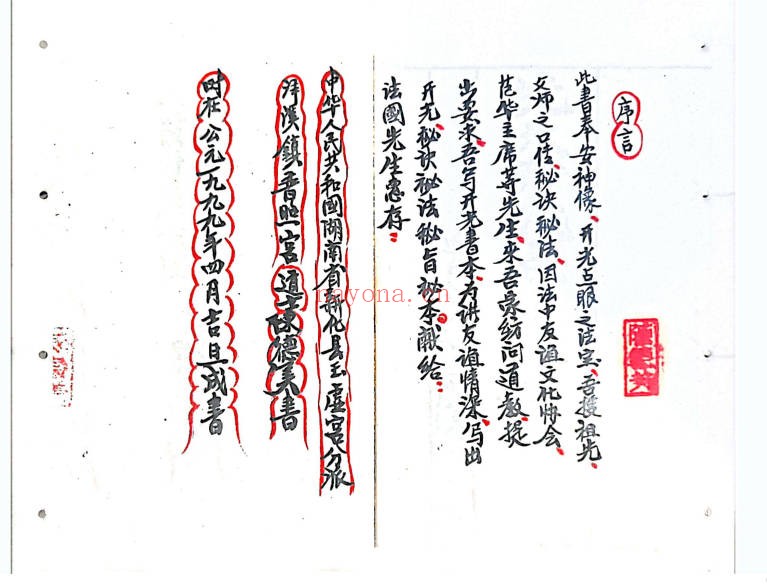 序言
此書奉安神像、开光点眼之法宝、吾授祖先、
父师之口传、秘决秘法、因法中友谊文化协会、
范华主席等先生、来吾处访问道教、提
出要求、吾写开光書本、为讲友谊情深、写出
开光、秘诀秘法秘旨秘本献给:
法國先生惠存:
中华人民共和國湖南省新化县玉虚宫分派
洋溪鎮普照宫道士陳德美書
时在公元一九九九年四月吉旦成書
nayona.cn
陳德美